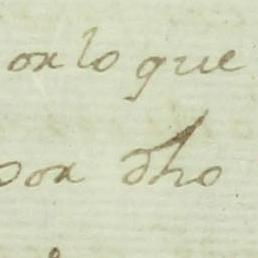 or lo que
por dho